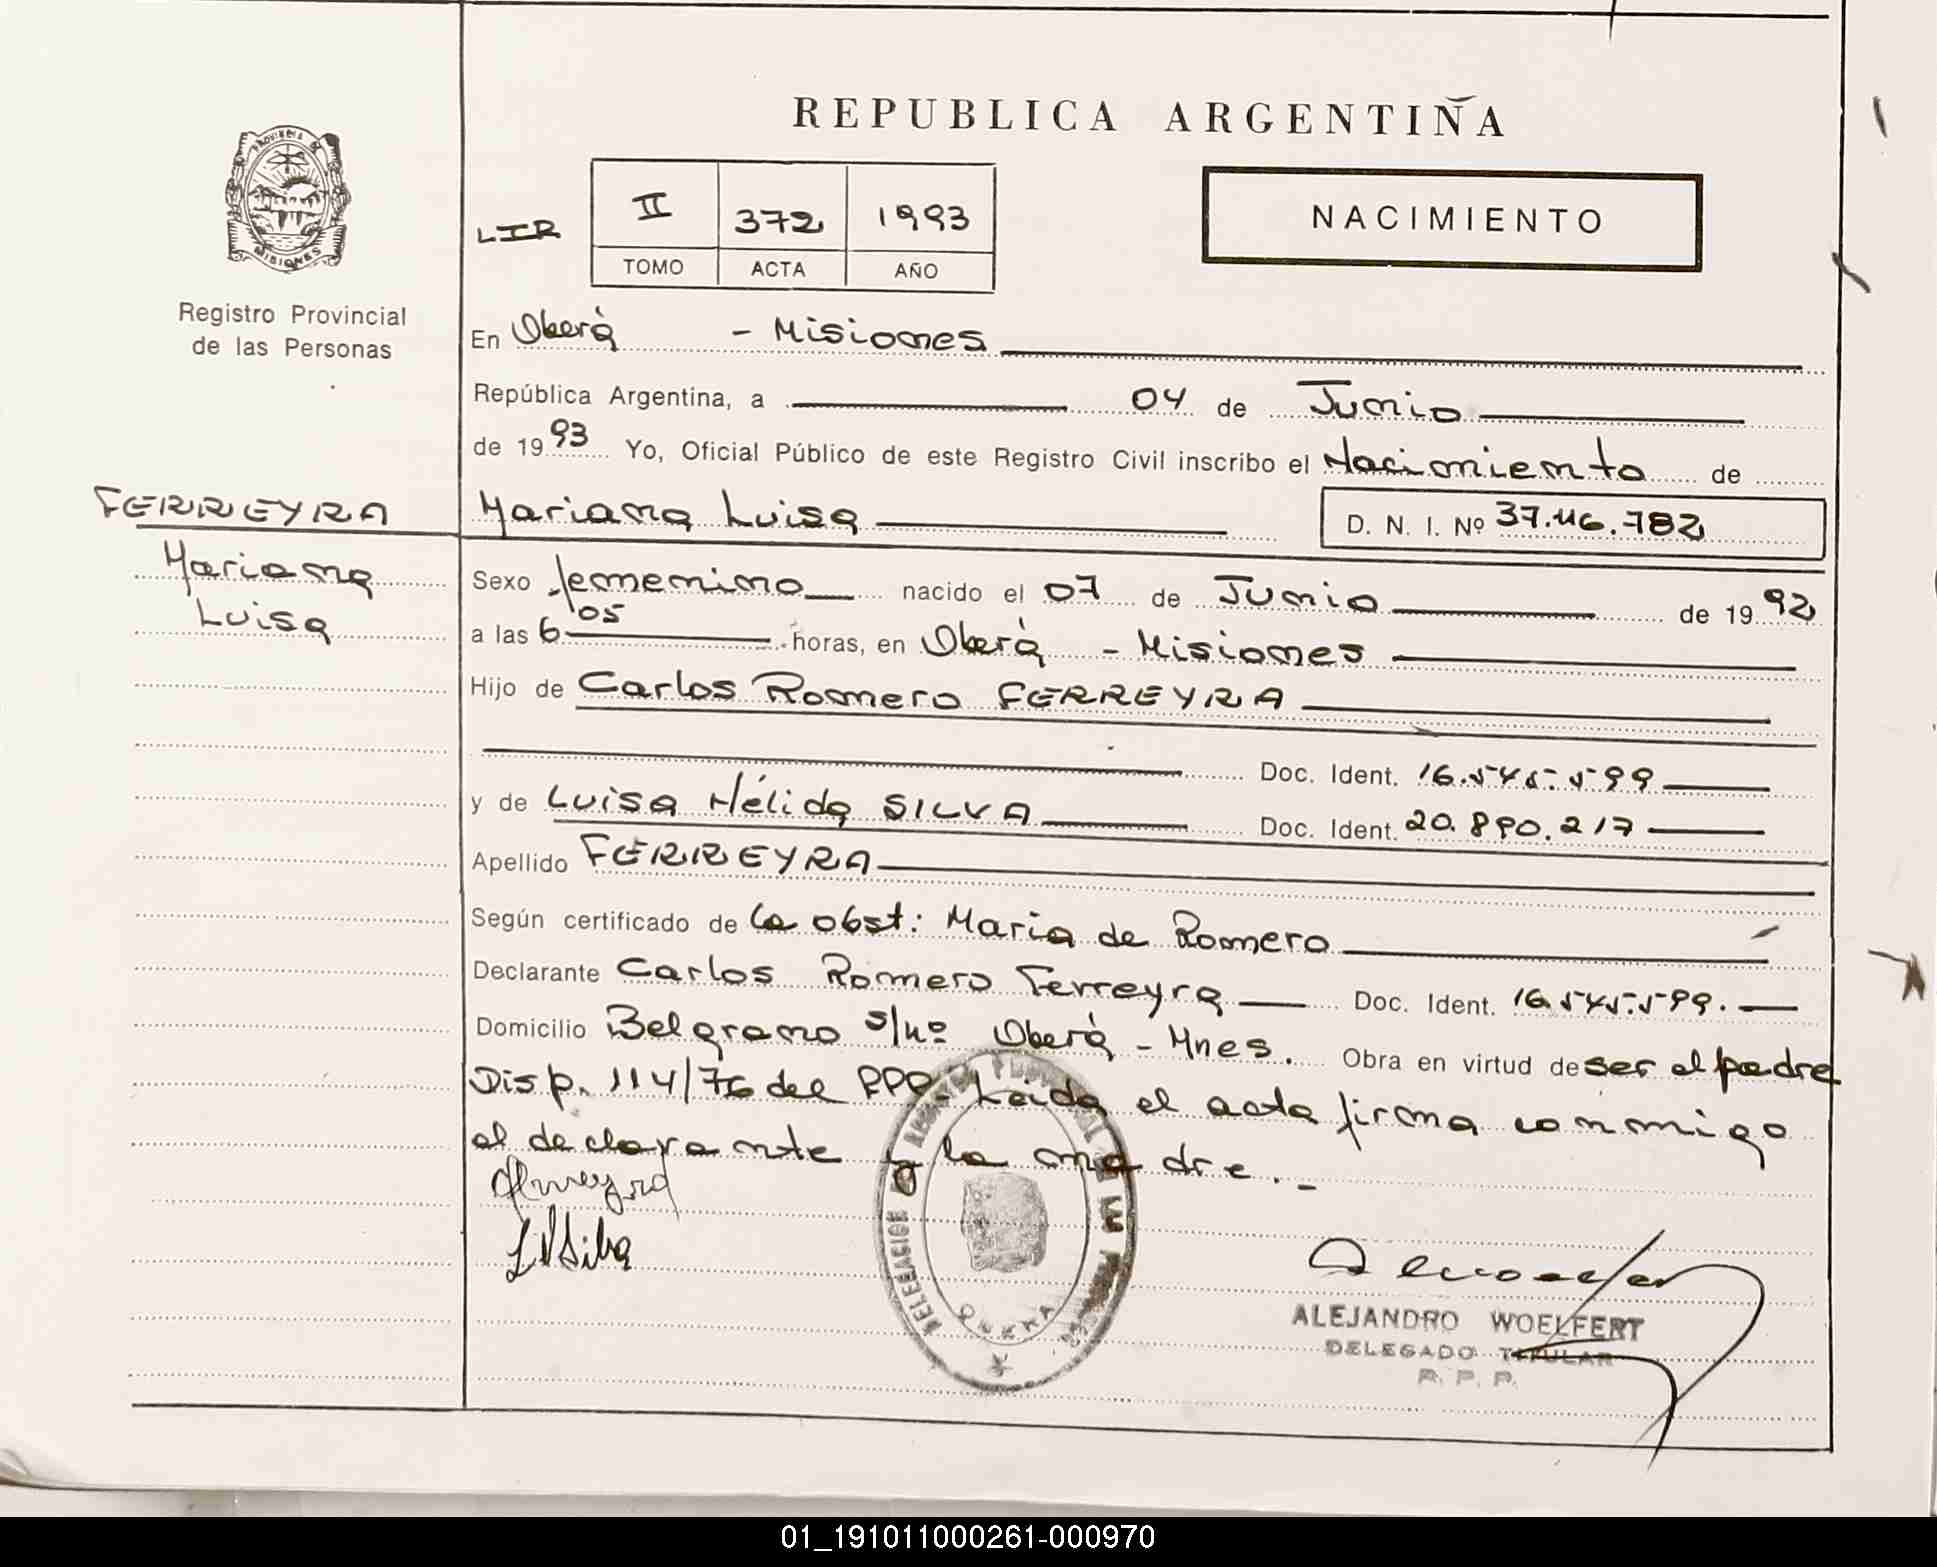 REPUBLICA ARGENTIÑA
PROVINCIA DE MISIONES
Registro Provincial
de las Personas
II 372 1993
TOMO ACTA AÑO
NACIMIENTO
En Oberá - Misiones
República Argentina, a 04 de Junio
de 1993 Yo, Oficial Público de este Registro Civil inscribo el Nacimiento de
FERREYRA
Mariana
Luisa
Mariana Luisa D. N. I. Nº 37.116.782
Sexo femenino nacido el 07 de Junio de 1992
a las 6 05 horas, en Oberá - Misiones
Hijo de Carlos Romero FERREYRA
Doc. Ident. 16.545.599
y de Luisa Nélida SILVA Doc. Ident. 20.890.217
Apellido FERREYRA
Según certificado de la obst: Maria de Romero
Declarante Carlos Romero Ferreyra Doc. Ident. 16.545.599.
Domicilio Belgrano s/nº Oberá - Mnes. Obra en virtud de ser el padre
Disp. 114/76 del RPP. Leida el acta firma conmigo
el declarante y la madre.-
ALEJANDRO WOELFERT
DELEGADO TITULAR
R. P. P.
01_191011000261-000970